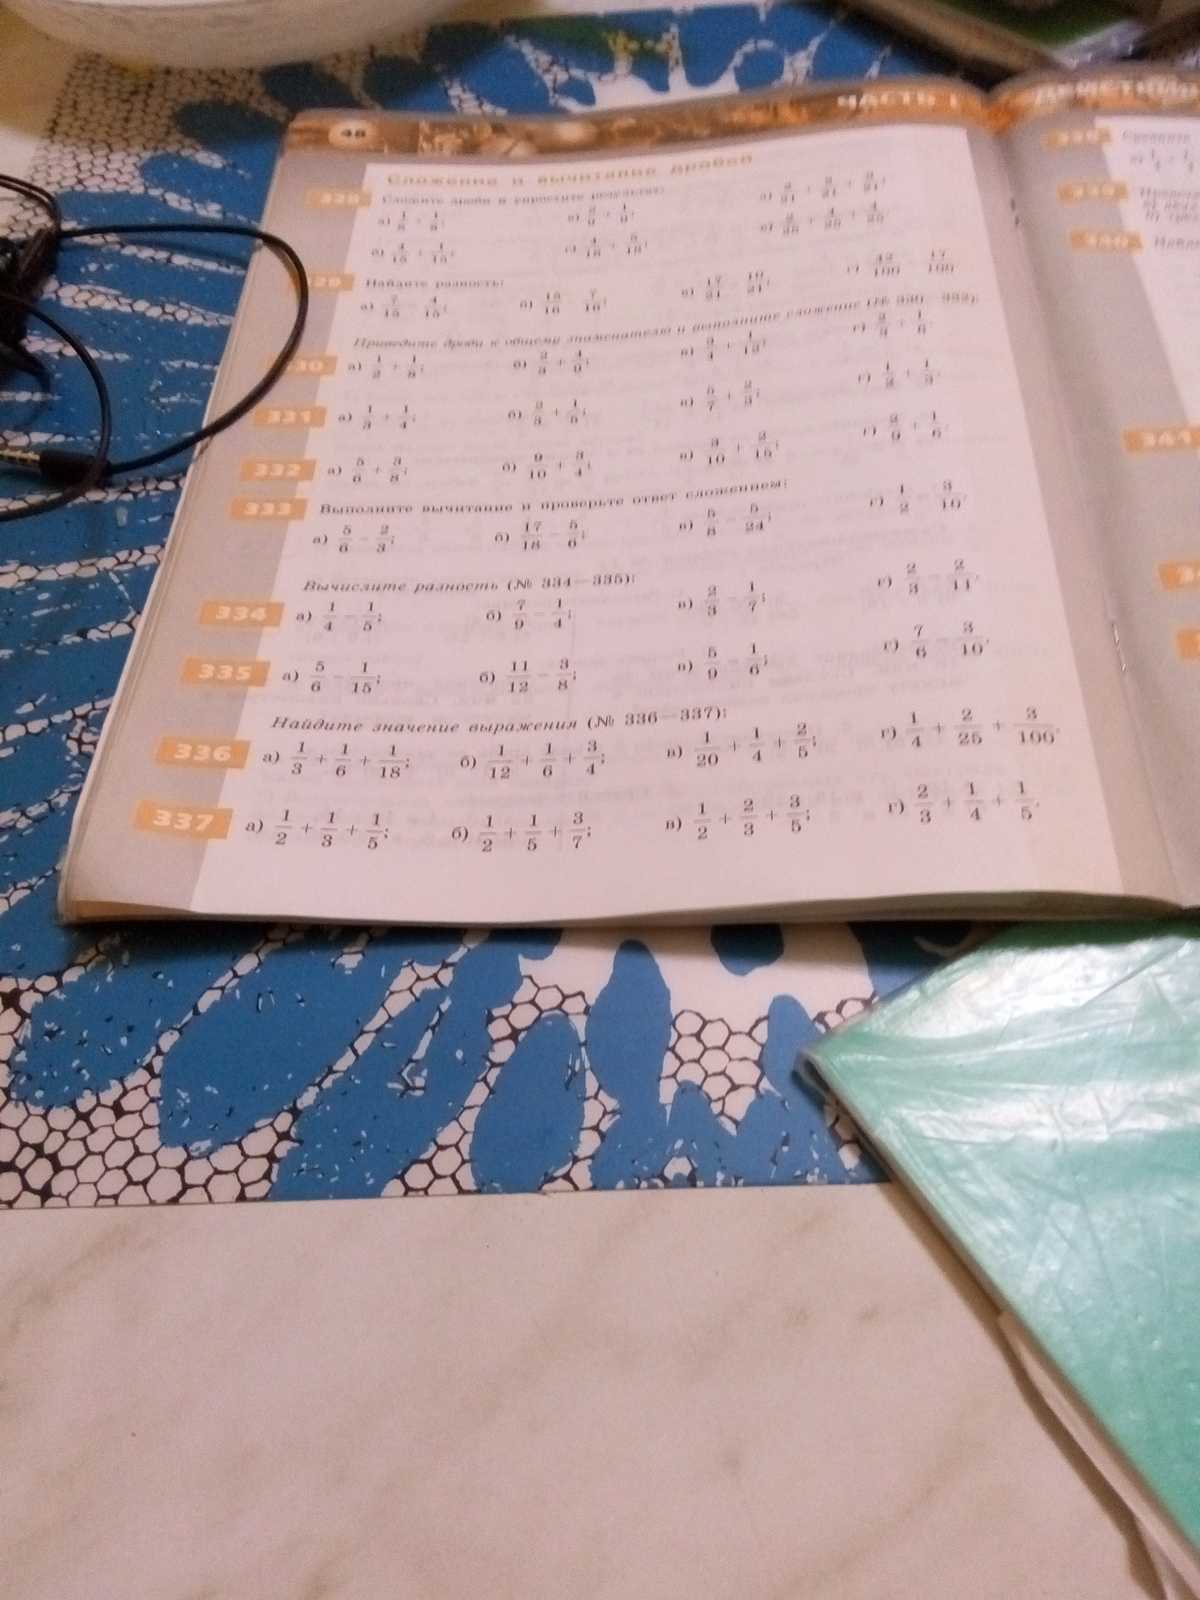 48
ЧАСТЬ 1
Сложение и вычитание дробей
328 Сложите дроби и упростите результат:
а) 1/8 + 1/8; в) 2/9 + 1/9; д) 2/21 + 2/21 + 3/21;
б) 4/15 + 1/15; г) 4/18 + 5/18; е) 2/25 + 4/25 + 4/25.
329 Найдите разность:
а) 7/15 − 4/15; б) 15/16 − 7/16; в) 17/21 − 10/21; г) 42/100 − 17/100.
Приведите дроби к общему знаменателю и выполните сложение (№ 330—332):
330 а) 1/2 + 1/8; б) 2/3 + 4/9; в) 3/4 + 1/12; г) 2/3 + 1/6.
331 а) 1/3 + 1/4; б) 2/3 + 1/5; в) 5/7 + 2/3; г) 1/2 + 1/3.
332 а) 5/6 + 3/8; б) 9/10 + 3/4; в) 3/10 + 2/15; г) 2/9 + 1/6.
333 Выполните вычитание и проверьте ответ сложением:
а) 5/6 − 2/3; б) 17/18 − 5/6; в) 5/8 − 5/24; г) 1/2 − 3/10.
Вычислите разность (№ 334—335):
334 а) 1/4 − 1/5; б) 7/9 − 1/4; в) 2/3 − 1/7; г) 2/3 − 2/11.
335 а) 5/6 − 1/15; б) 11/12 − 3/8; в) 5/9 − 1/6; г) 7/6 − 3/10.
Найдите значение выражения (№ 336—337):
336 а) 1/3 + 1/6 + 1/18; б) 1/12 + 1/6 + 3/4; в) 1/20 + 1/4 + 2/5; г) 1/4 + 2/25 + 3/100.
337 а) 1/2 + 1/3 + 1/5; б) 1/2 + 1/5 + 3/7; в) 1/2 + 2/3 + 3/5; г) 2/3 + 1/4 + 1/5.
338 Сравните
339
340
341